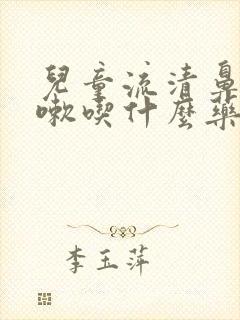 兒童流清鼻
嗽喫什麼藥
李玉萍